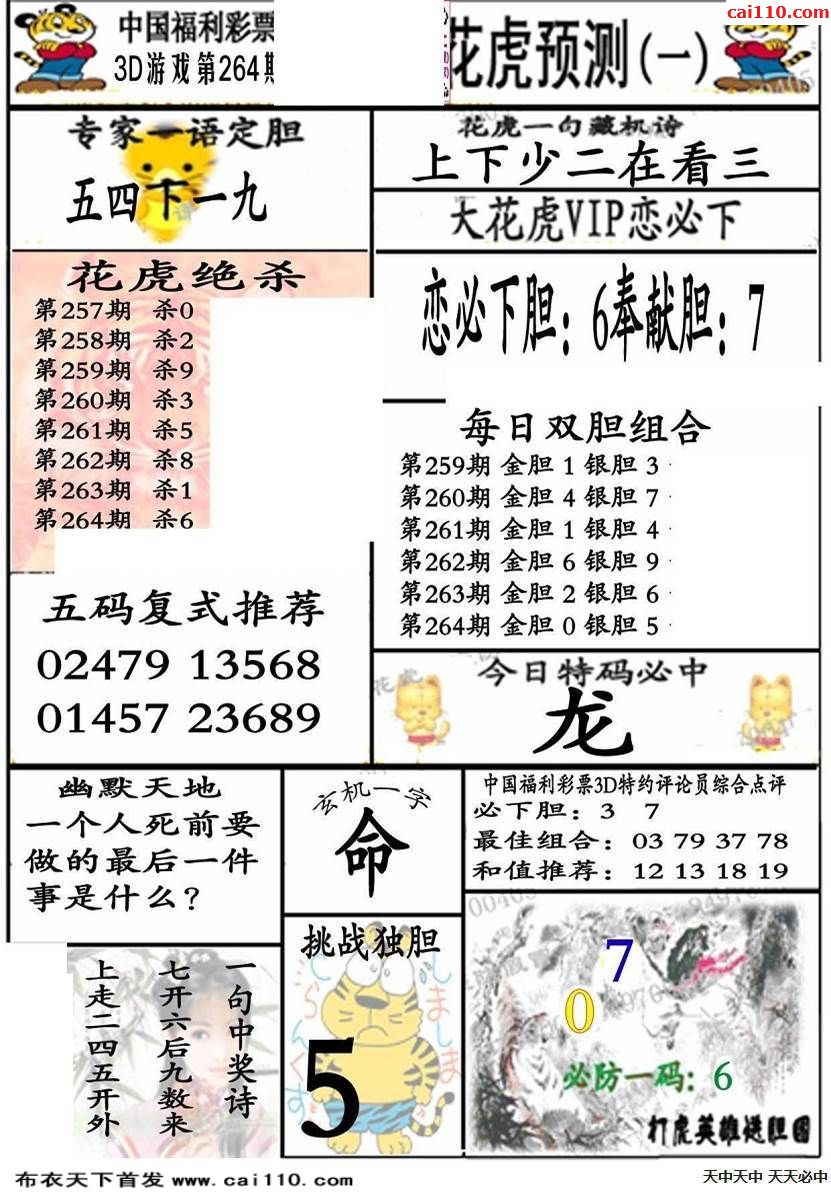 cai110.com
中国福利彩票
3D游戏第264期
花虎预测(一)
专家一语定胆
五四下一九
花虎一句藏机诗
上下少二在看三
大花虎VIP恋必下
恋必下胆：6奉献胆：7
花虎绝杀
第257期 杀0
第258期 杀2
第259期 杀9
第260期 杀3
第261期 杀5
第262期 杀8
第263期 杀1
第264期 杀6
每日双胆组合
第259期 金胆 1 银胆 3
第260期 金胆 4 银胆 7
第261期 金胆 1 银胆 4
第262期 金胆 6 银胆 9
第263期 金胆 2 银胆 6
第264期 金胆 0 银胆 5
五码复式推荐
02479 13568
01457 23689
今日特码必中
龙
幽默天地
一个人死前要
做的最后一件
事是什么？
玄机一字
命
中国福利彩票3D特约评论员综合点评
必下胆：3 7
最佳组合：03 79 37 78
和值推荐：12 13 18 19
一句中奖诗
七开六后九数来
上走二四五开外
挑战独胆
5
7
0
必防一码：6
打虎英雄送胆图
布衣天下首发 www.cai110.com
天中天中 天天必中